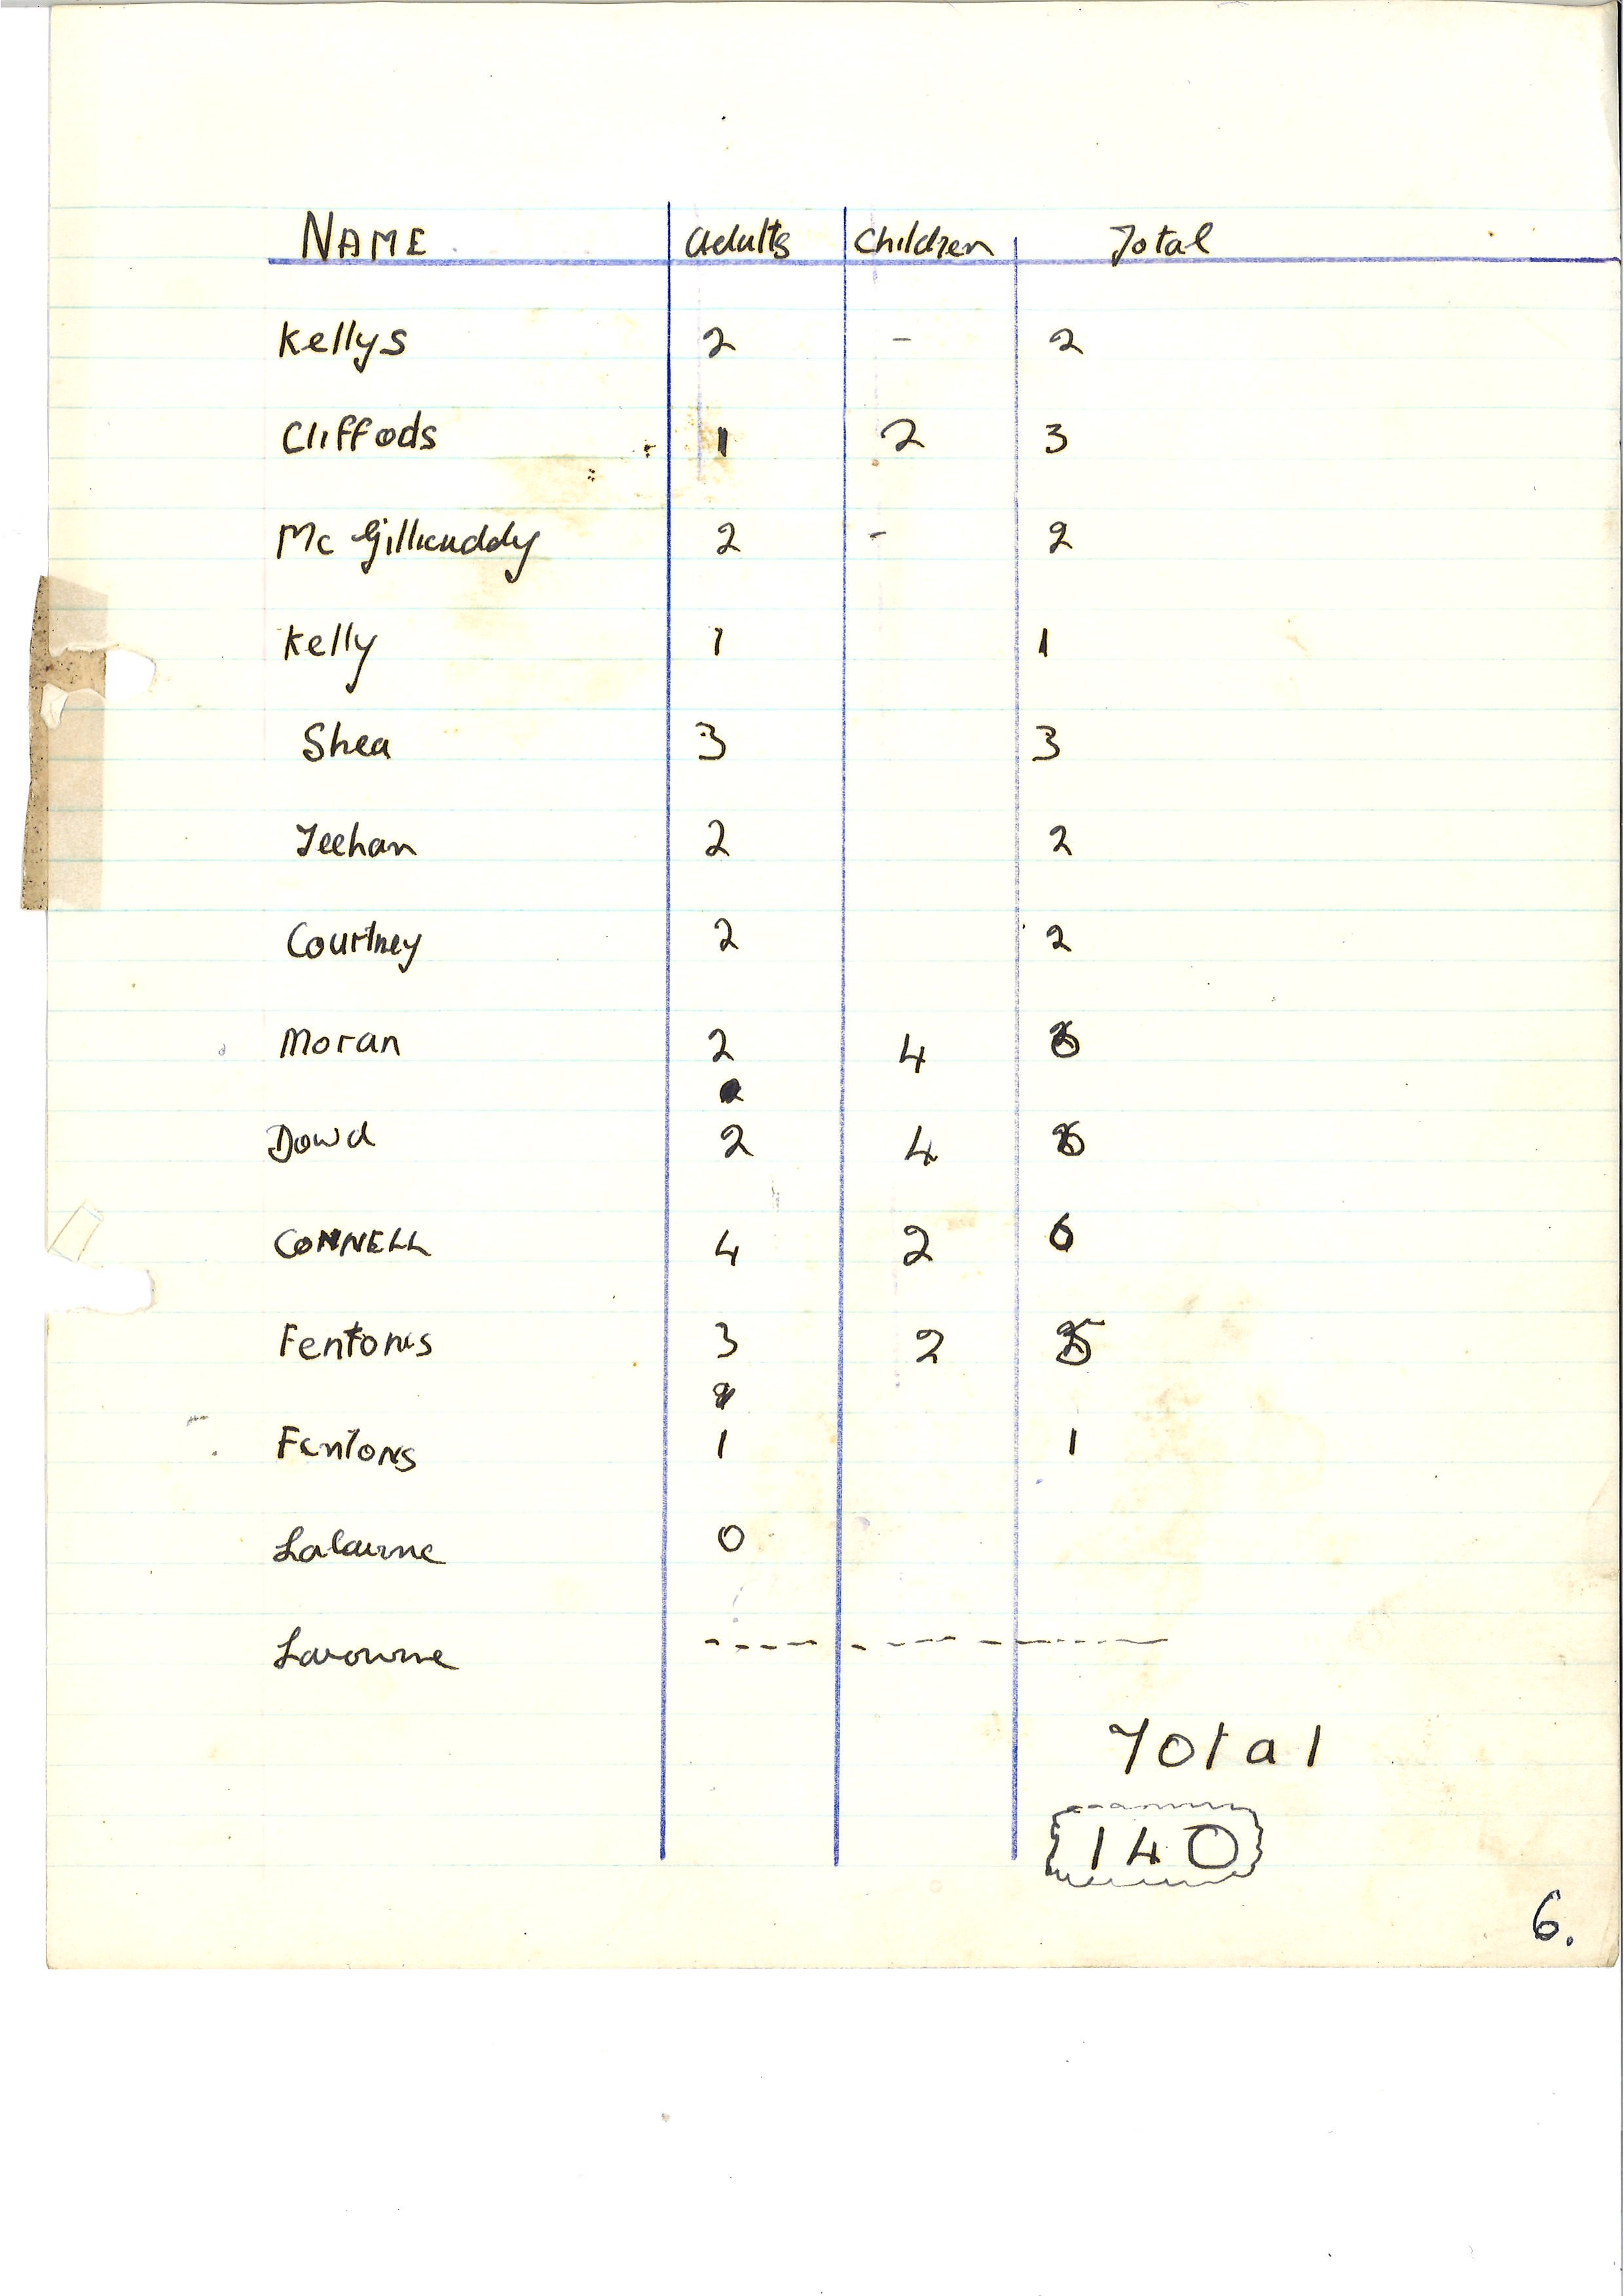 NAME adults Children Total
Kellys 2 - 2
Cliffods 1 2 3
Mc Gillicuddy 2 - 2
Kelly 1 1
Shea 3 3
Teehan 2 2
Courtney 2 2
Moran 2 4 6
Dowd 2 4 6
CONNELL 4 2 6
Fentons 3 2 5
Fentons 1 1
0
Total
140
6.